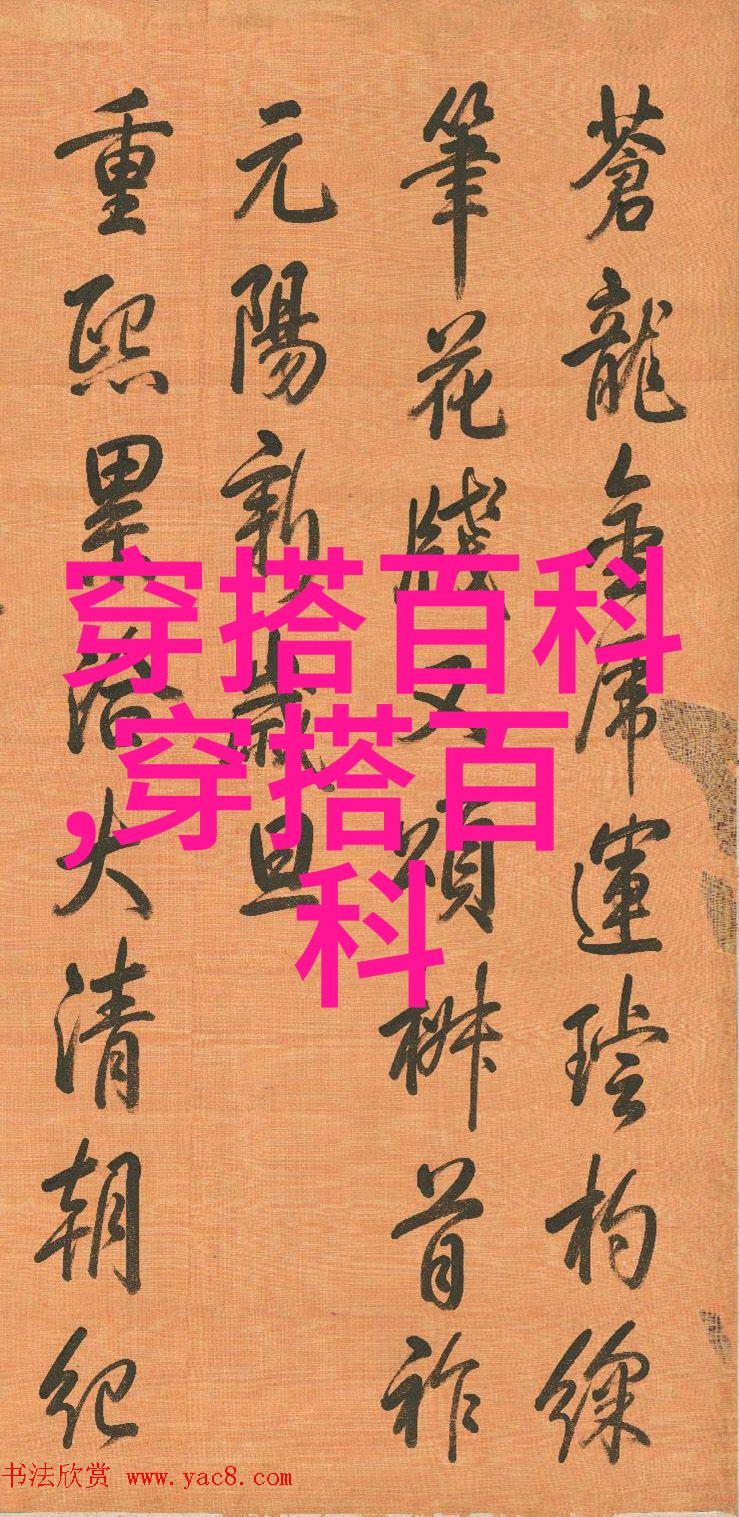 蒼龍金虎運璿杓綵
筆花牋又頌椒首祚
元陽新歲旦
重熙累洽大清朝紀
穿搭百科
,穿搭百
科
书法欣赏 www.yac8.com